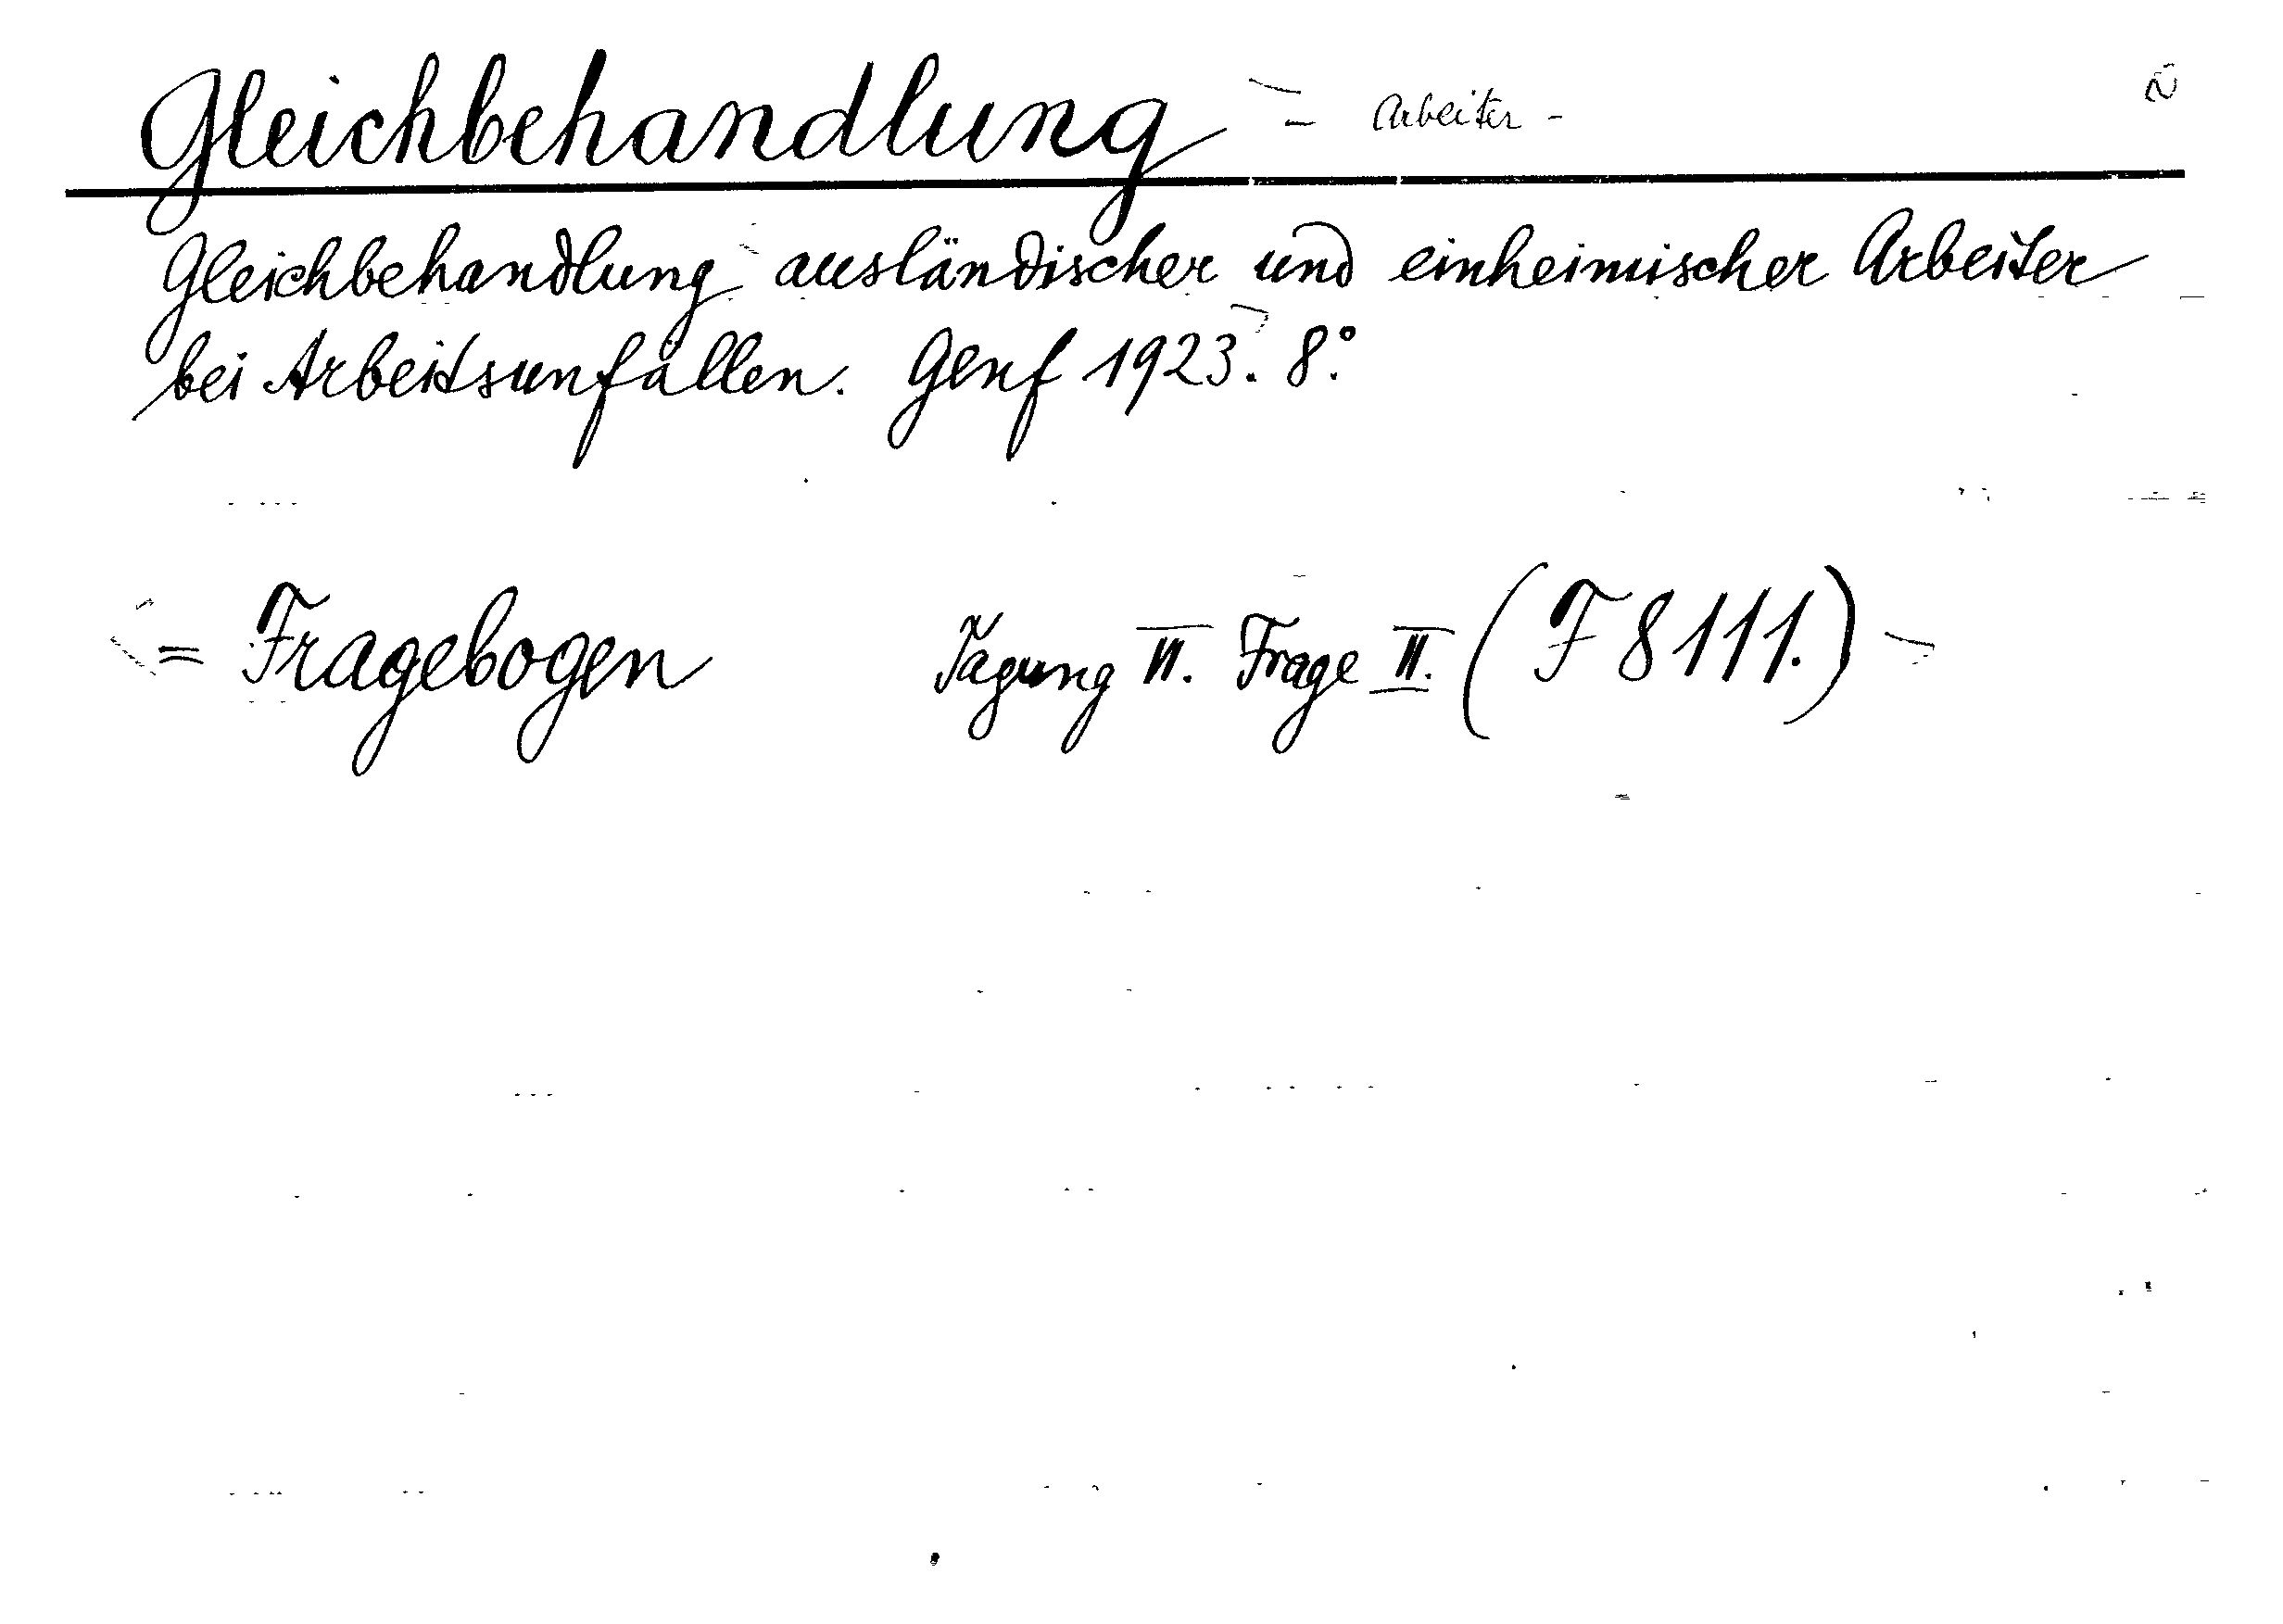 Gleichbehandlung = Arbeiter -
Gleichbehandlung ausländischer und einheimischer Arbeiter
bei Arbeitsunfällen. Genf 1923. 8°.
= Fragebogen Tagung VI. Frage II. (F 8111.)